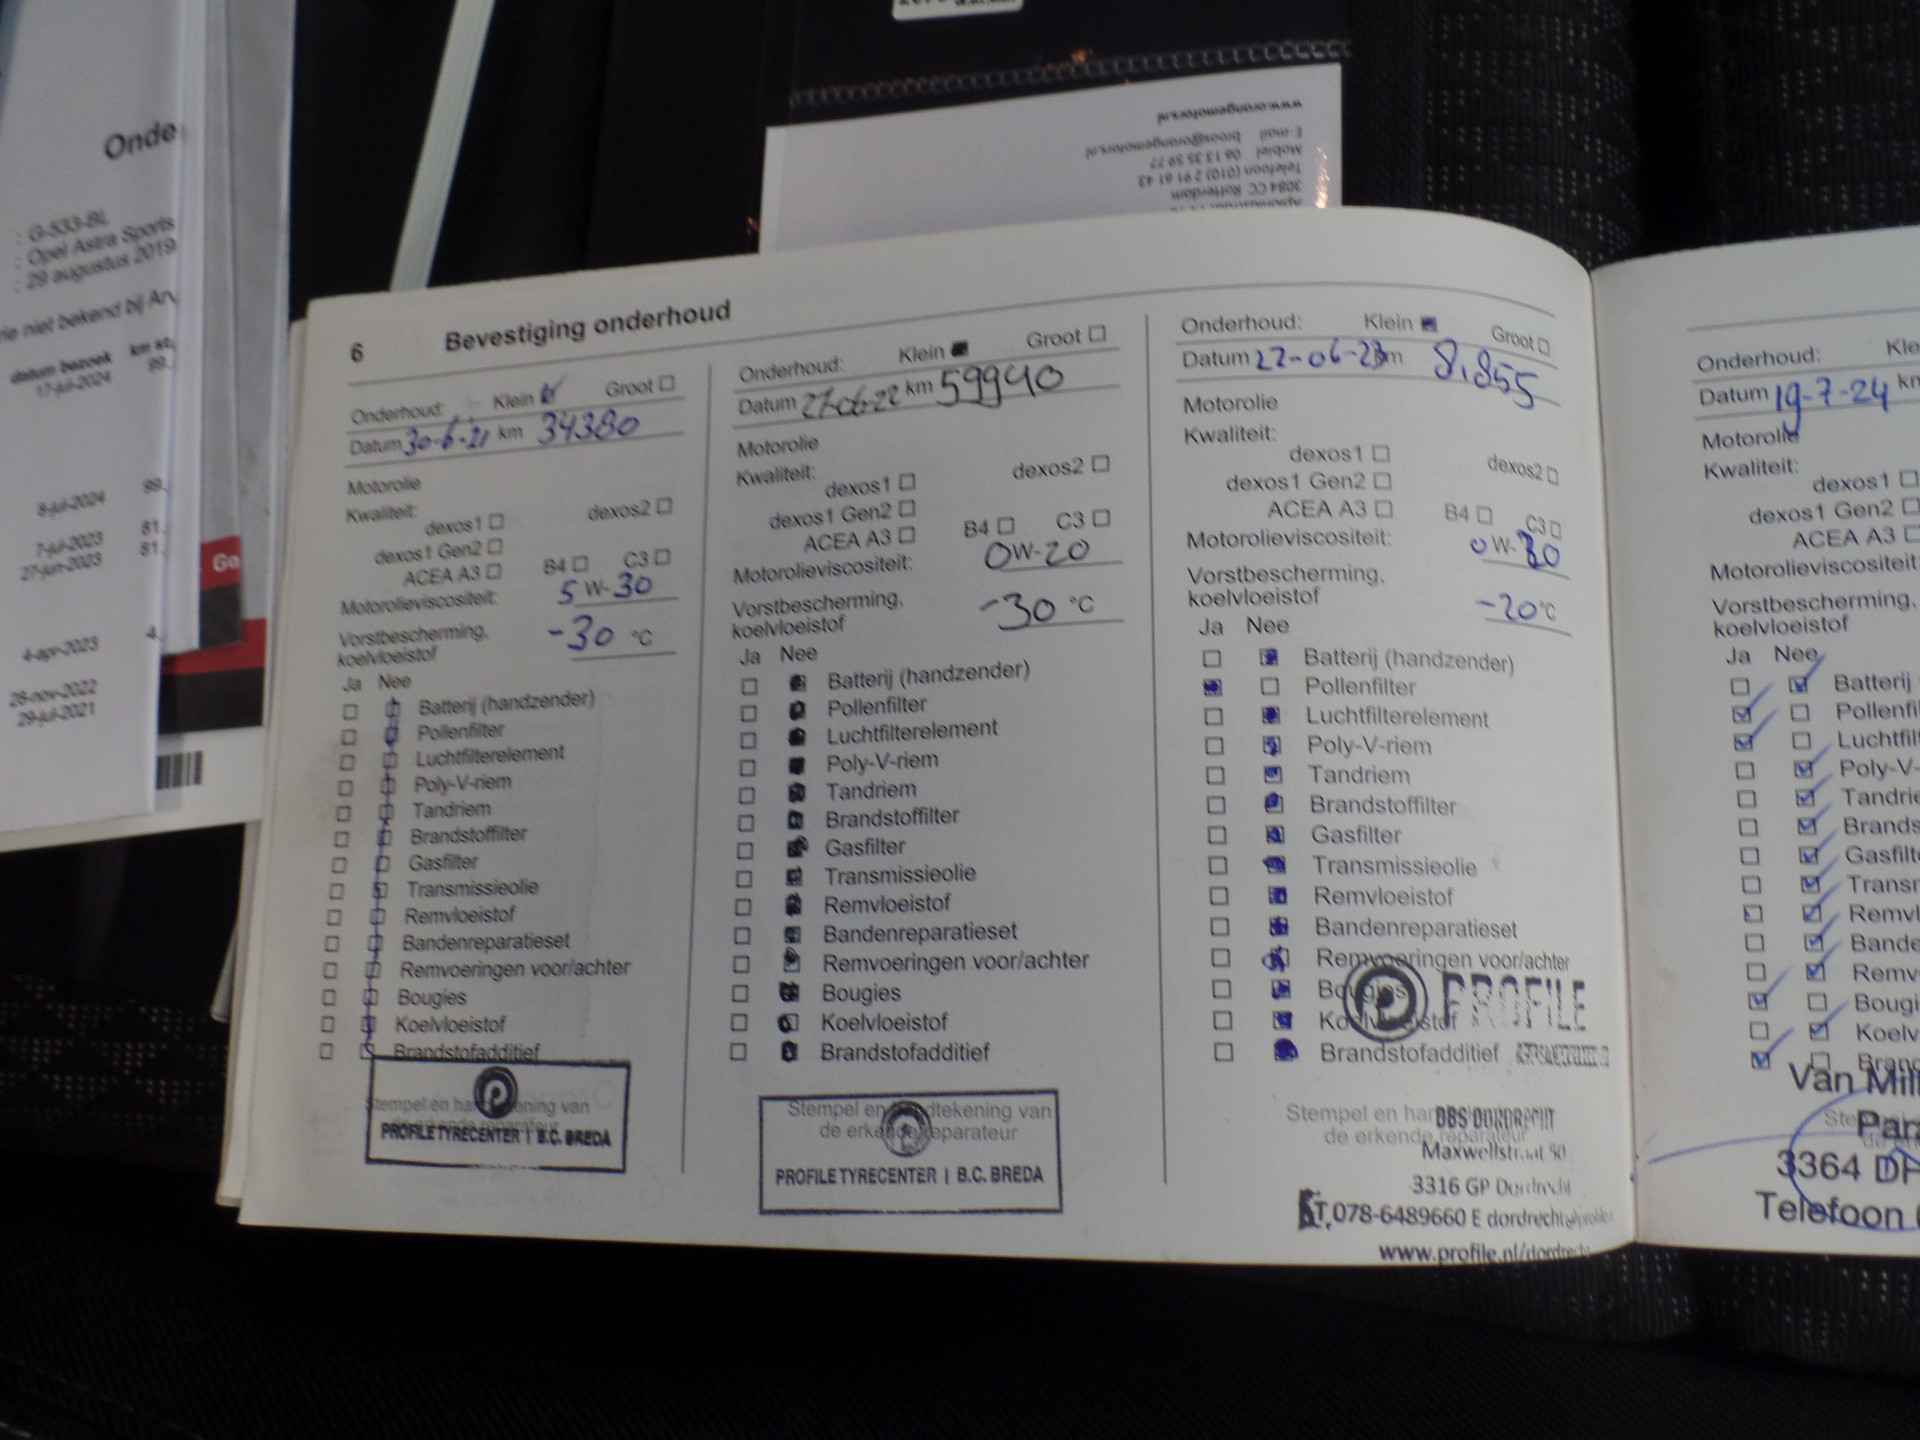 Onde
: G-533-BL
: Opel Astra Sports
: 29 augustus 2019
rie niet bekend bij An
datum bezoek km st.
17-jul-2024 99.
8-jul-2024 99.
7-jul-2023 81.
27-jun-2023 81.
4-apr-2023 4.
28-nov-2022
29-jul-2021
Go
www.orangemotors.nl
E-mail broos@orangemotors.nl
Mobiel 06 13 35 59 77
Telefoon (010) 2 91 61 43
3084 CC Rotterdam
6 Bevestiging onderhoud
Onderhoud: Klein Groot
Datum 30-6-21 km 34380
Motorolie
Kwaliteit:
dexos1 dexos2
dexos1 Gen2
ACEA A3 B4 C3
Motorolieviscositeit: 5 W-30
Vorstbescherming,
koelvloeistof -30 °C
Ja Nee
Batterij (handzender)
Pollenfilter
Luchtfilterelement
Poly-V-riem
Tandriem
Brandstoffilter
Gasfilter
Transmissieolie
Remvloeistof
Bandenreparatieset
Remvoeringen voor/achter
Bougies
Koelvloeistof
Brandstofadditief
Stempel en handtekening van
PROFILE TYRECENTER | B.C. BREDA
Onderhoud: Klein Groot
Datum 27-06-22 km 59940
Motorolie
Kwaliteit:
dexos1 dexos2
dexos1 Gen2
ACEA A3 B4 C3
Motorolieviscositeit: 0W-20
Vorstbescherming,
koelvloeistof -30 °C
Ja Nee
Batterij (handzender)
Pollenfilter
Luchtfilterelement
Poly-V-riem
Tandriem
Brandstoffilter
Gasfilter
Transmissieolie
Remvloeistof
Bandenreparatieset
Remvoeringen voor/achter
Bougies
Koelvloeistof
Brandstofadditief
Stempel en handtekening van
de erkende reparateur
PROFILE TYRECENTER | B.C. BREDA
Onderhoud: Klein Groot
Datum 22-06-23 km 8.855
Motorolie
Kwaliteit:
dexos1 dexos2
dexos1 Gen2
ACEA A3 B4 C3
Motorolieviscositeit: 0 W-
Vorstbescherming,
koelvloeistof -20°C
Ja Nee
Batterij (handzender)
Pollenfilter
Luchtfilterelement
Poly-V-riem
Tandriem
Brandstoffilter
Gasfilter
Transmissieolie
Remvloeistof
Bandenreparatieset
Remvoeringen voor/achter
Bougies
PROFILE
Koelvloeistof
Brandstofadditief
Stempel en han
DBS DORDRECHT
de erkende reparateur
Maxwellstraat 50
3316 GP Dordrecht
T. 078-6489660 E dordrecht@profile
www.profile.nl/dordrecht
Onderhoud: Kle
Datum 19-7-24 km
Motorolie
Kwaliteit:
dexos1
dexos1 Gen2
ACEA A3
Motorolieviscositeit
Vorstbescherming,
koelvloeistof
Ja Nee
Batterij
Pollenfil
Luchtfilt
Poly-V-
Tandrie
Brands
Gasfilte
Transm
Remvl
Bande
Remv
Bougi
Koelv
Bran
Van Mill
Ste
Par
3364 DH
Telefoon